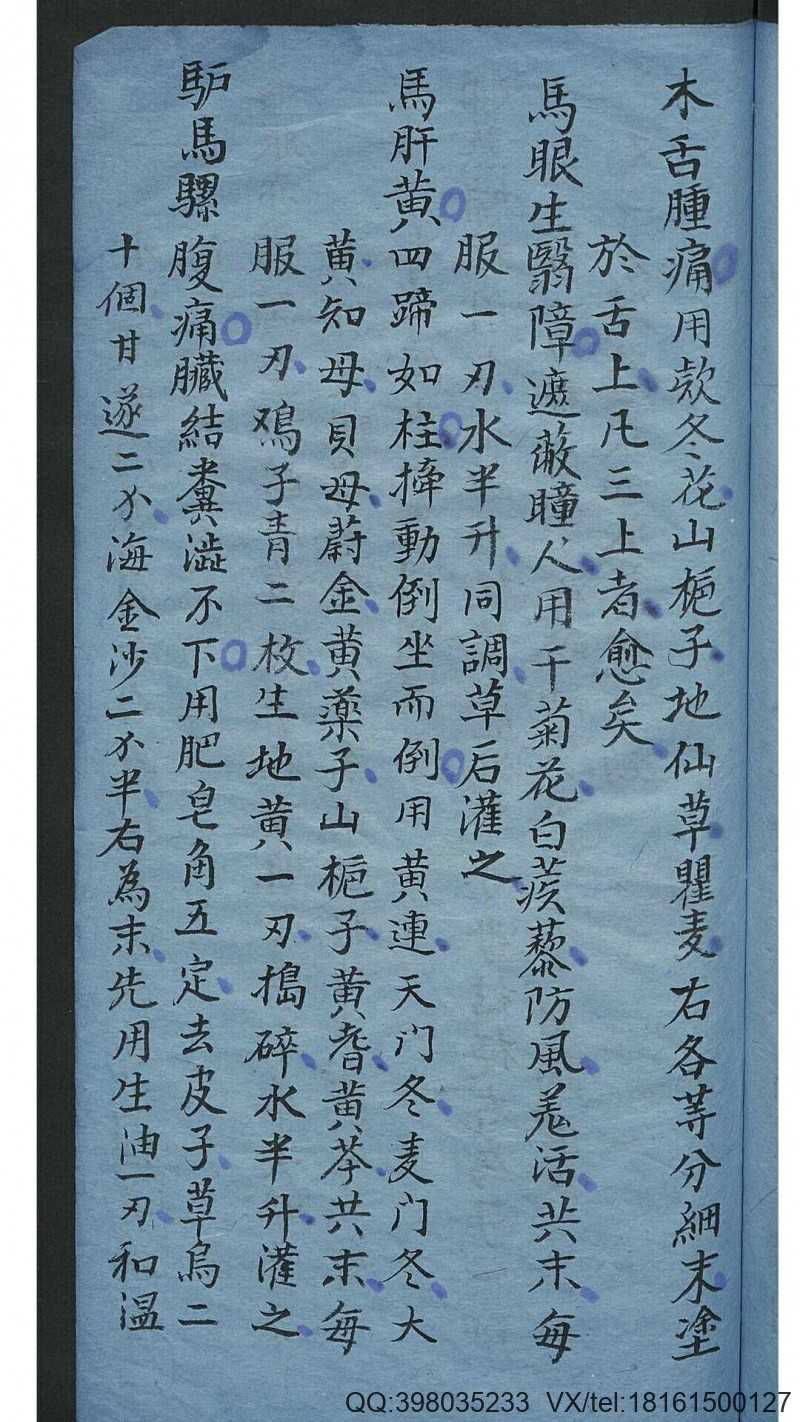 木舌腫痛用款冬花山梔子地仙草瞿麦右各等分細末塗
於舌上凡三上者愈矣
馬眼生翳障遮蔽瞳人用干菊花白蒺藜防風羌活共末每
服一刃水半升同調草后灌之
馬肝黄四蹄如柱擡動倒坐而倒用黄連天门冬麦门冬大
黄知母貝母蔚金黄藥子山梔子黄耆黄芩共末每
服一刃鸡子青二枚生地黄一刃搗碎水半升灌之
馿馬騾腹痛臟結糞澁不下用肥皂角五定去皮子草烏二
十個甘遂二分海金沙二分半右為末先用生油一刃和温
QQ:398035233 VX/tel:18161500127